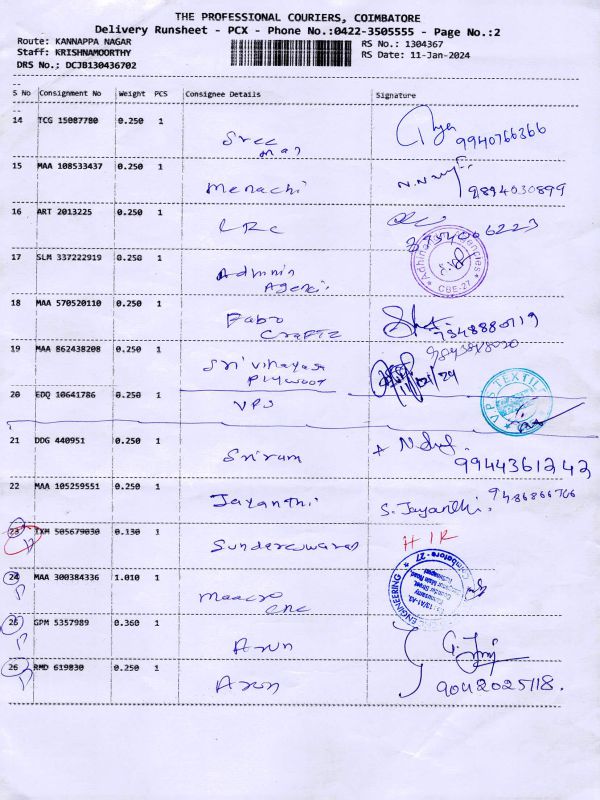 THE PROFESSIONAL COURIERS, COIMBATORE
Delivery Runsheet - PCX - Phone No.:0422-3505555 - Page No.:2
Route: KANNAPPA NAGAR
RS No.: 1304367
Staff: KRISHNAMOORTHY
RS Date: 11-Jan-2024
DRS No.: DCJB130436702
S No Consignment No Weight PCS Consignee Details Signature
14 TCG 15087780 0.250 1
Sree
9940766366
15 MAA 108533437 0.250 1
Menachi
9894030899
16 ART 2013225 0.250 1
LRC
17 SLM 337222919 0.250 1
Agenci
CBE-27
18 MAA 570520110 0.250 1
Fabo
19 MAA 862438208 0.250 1
Sri Vinayaga
Plywoot
20 EDQ 10641786 0.250 1
VPS
TEXTILE
21 DDG 440951 0.250 1
Sriram
9944361242
22 MAA 105259551 0.250 1
Jayanthi
S. Jayanthi.
23 TXM 505679030 0.130 1
24 MAA 300384336 1.010 1
CNC
ENGINEERING
Coimbatore - 27
25 GPM 5357989 0.360 1
Arun
26 RMD 619830 0.250 1
Arun
9042025118.